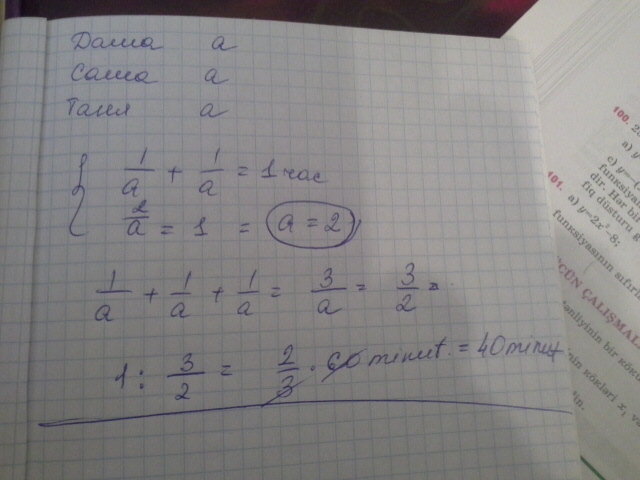 Даша a
Саша a
Таня a
1/a + 1/a = 1 час
2/a = 1 = a = 2
1/a + 1/a + 1/a = 3/a = 3/2 =
1 : 3/2 = 2/3 · 60 minut. = 40 minut
100.
a) y
c) y=
funksiya
dir. Hər
fiq düsturu
101.
a) y=2x²-8;
funksiyasının sıfırl
ÜÇÜN ÇALIŞMAL
ənliyinin bir kök
nin kökləri x,
din.